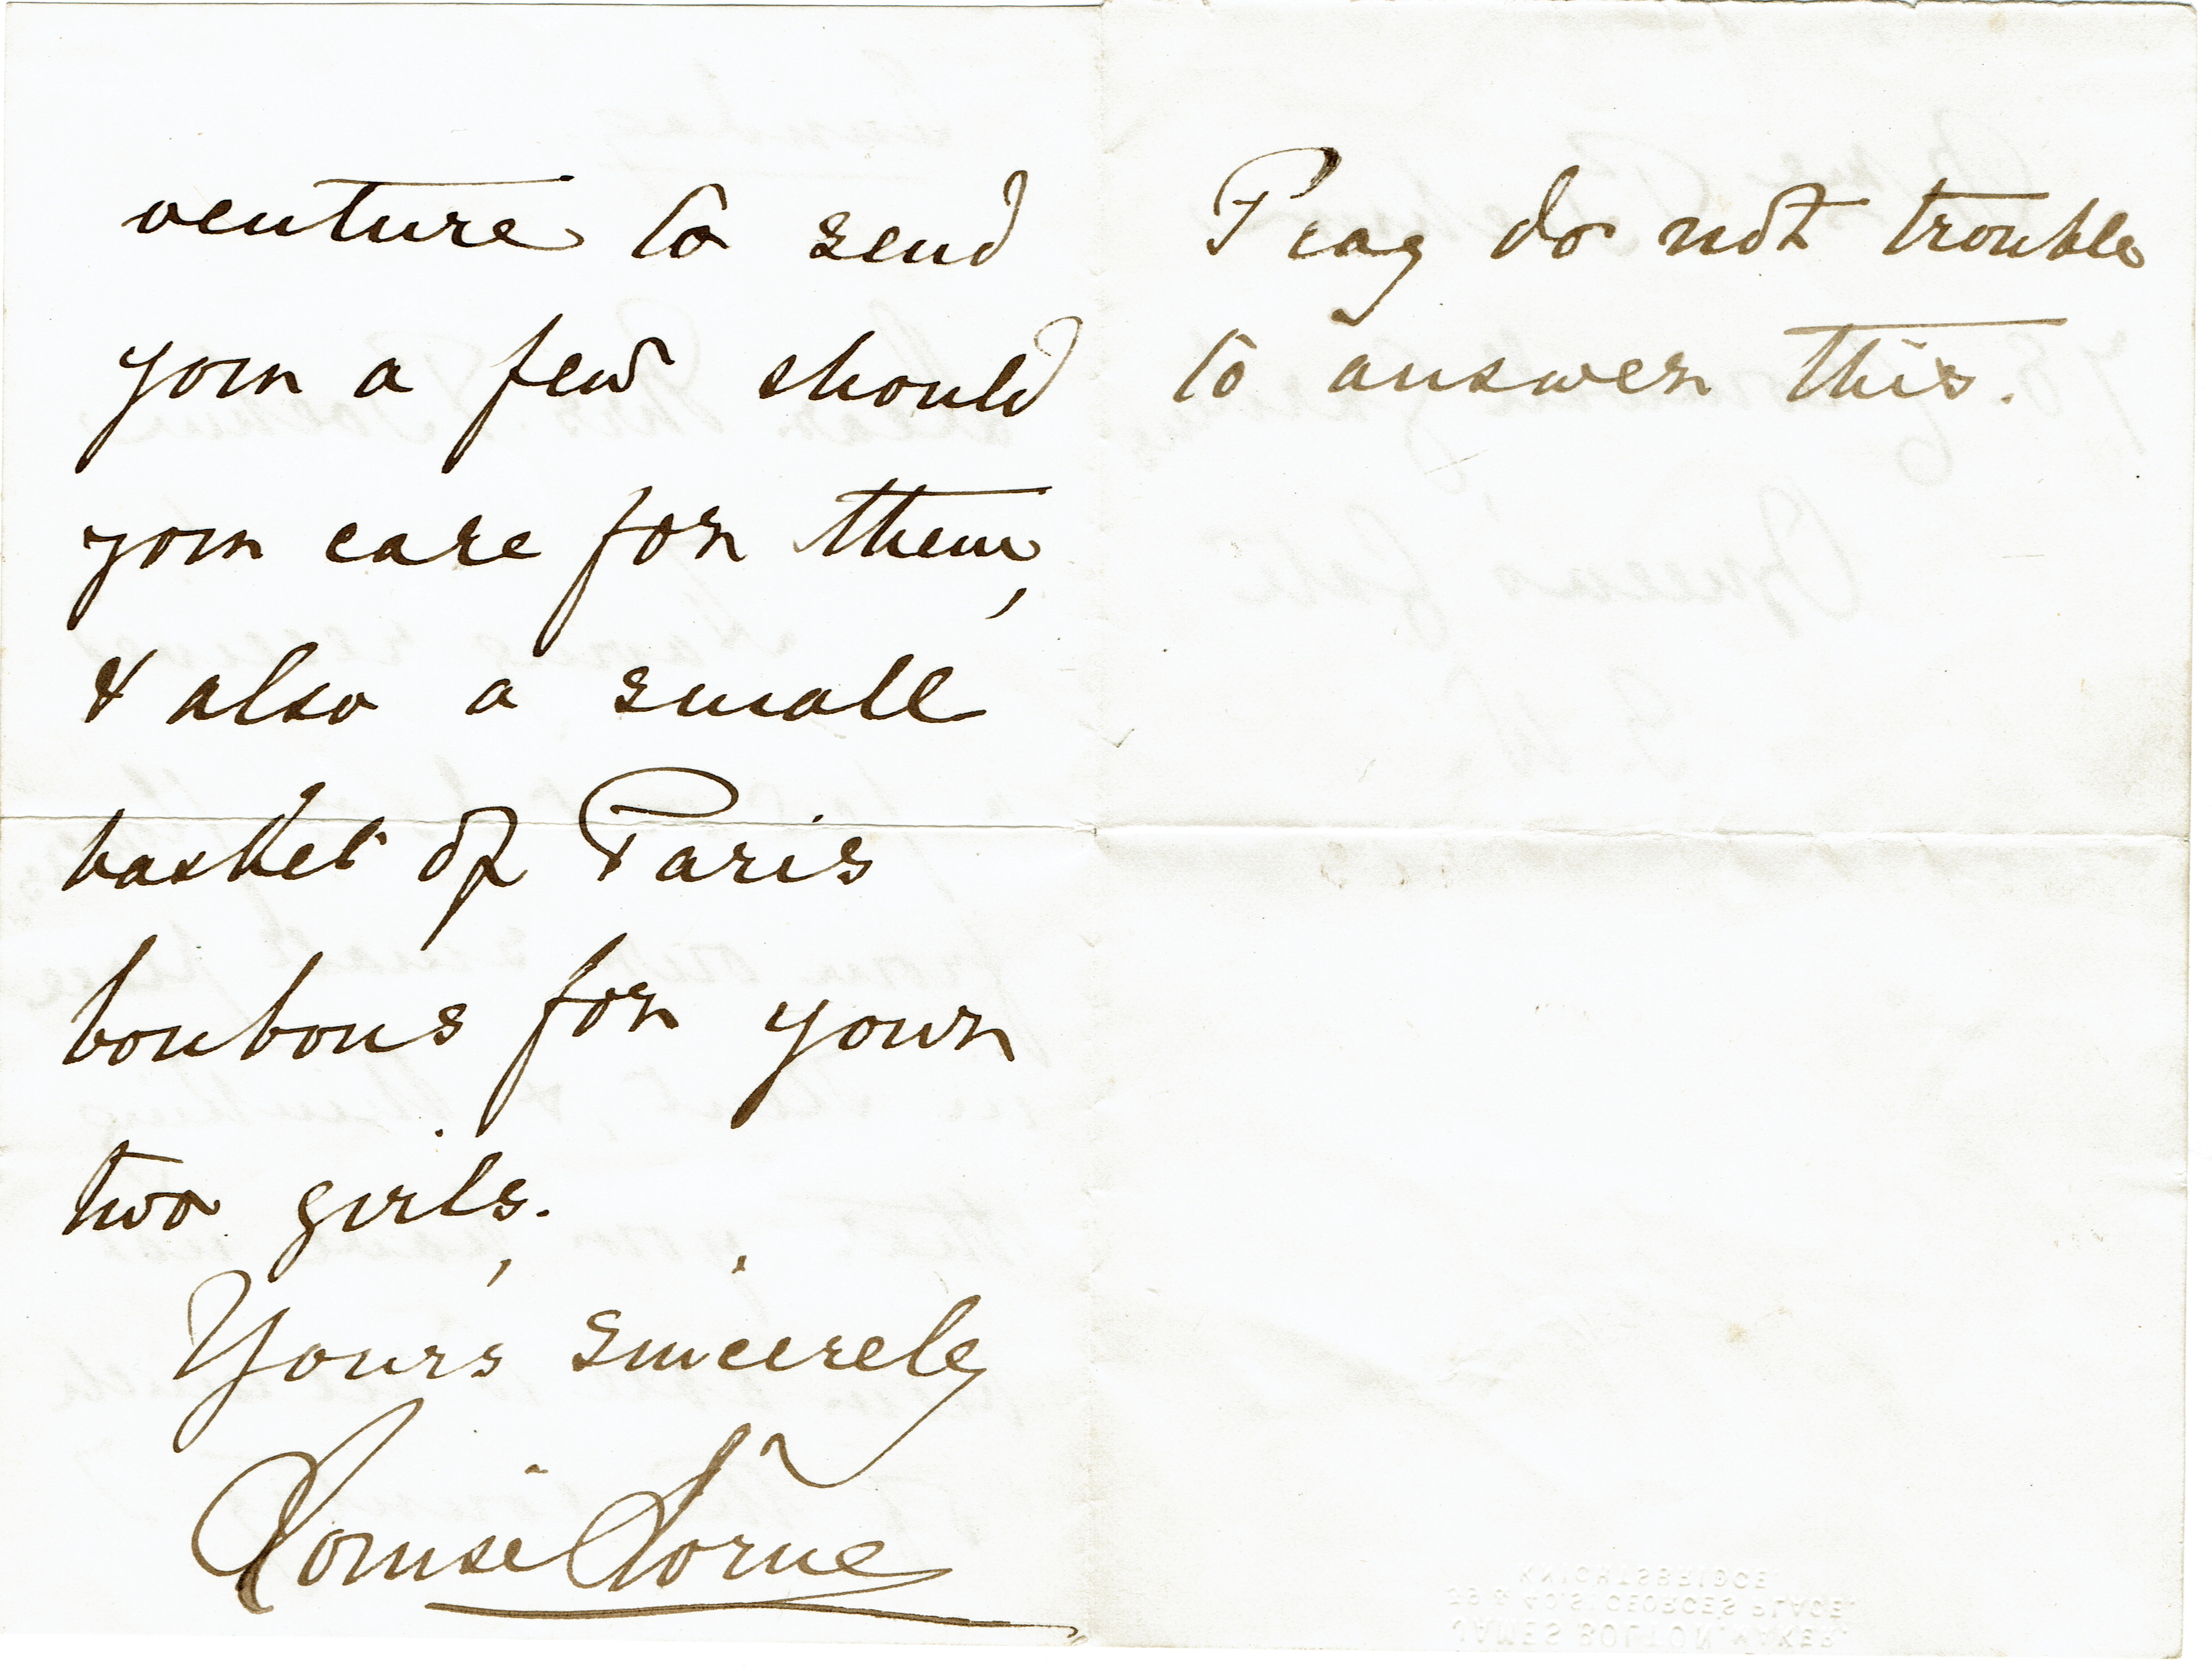 venture to send
you a few should
you care for them,
& also a small
basket of Paris
bonbons for your
two girls.
Yours sincerely
Louise Lorne
Pray do not trouble
to answer this.
JAMES BOLTON, MAKER,
39 & 40, ST GEORGE'S PLACE,
KNIGHTSBRIDGE.